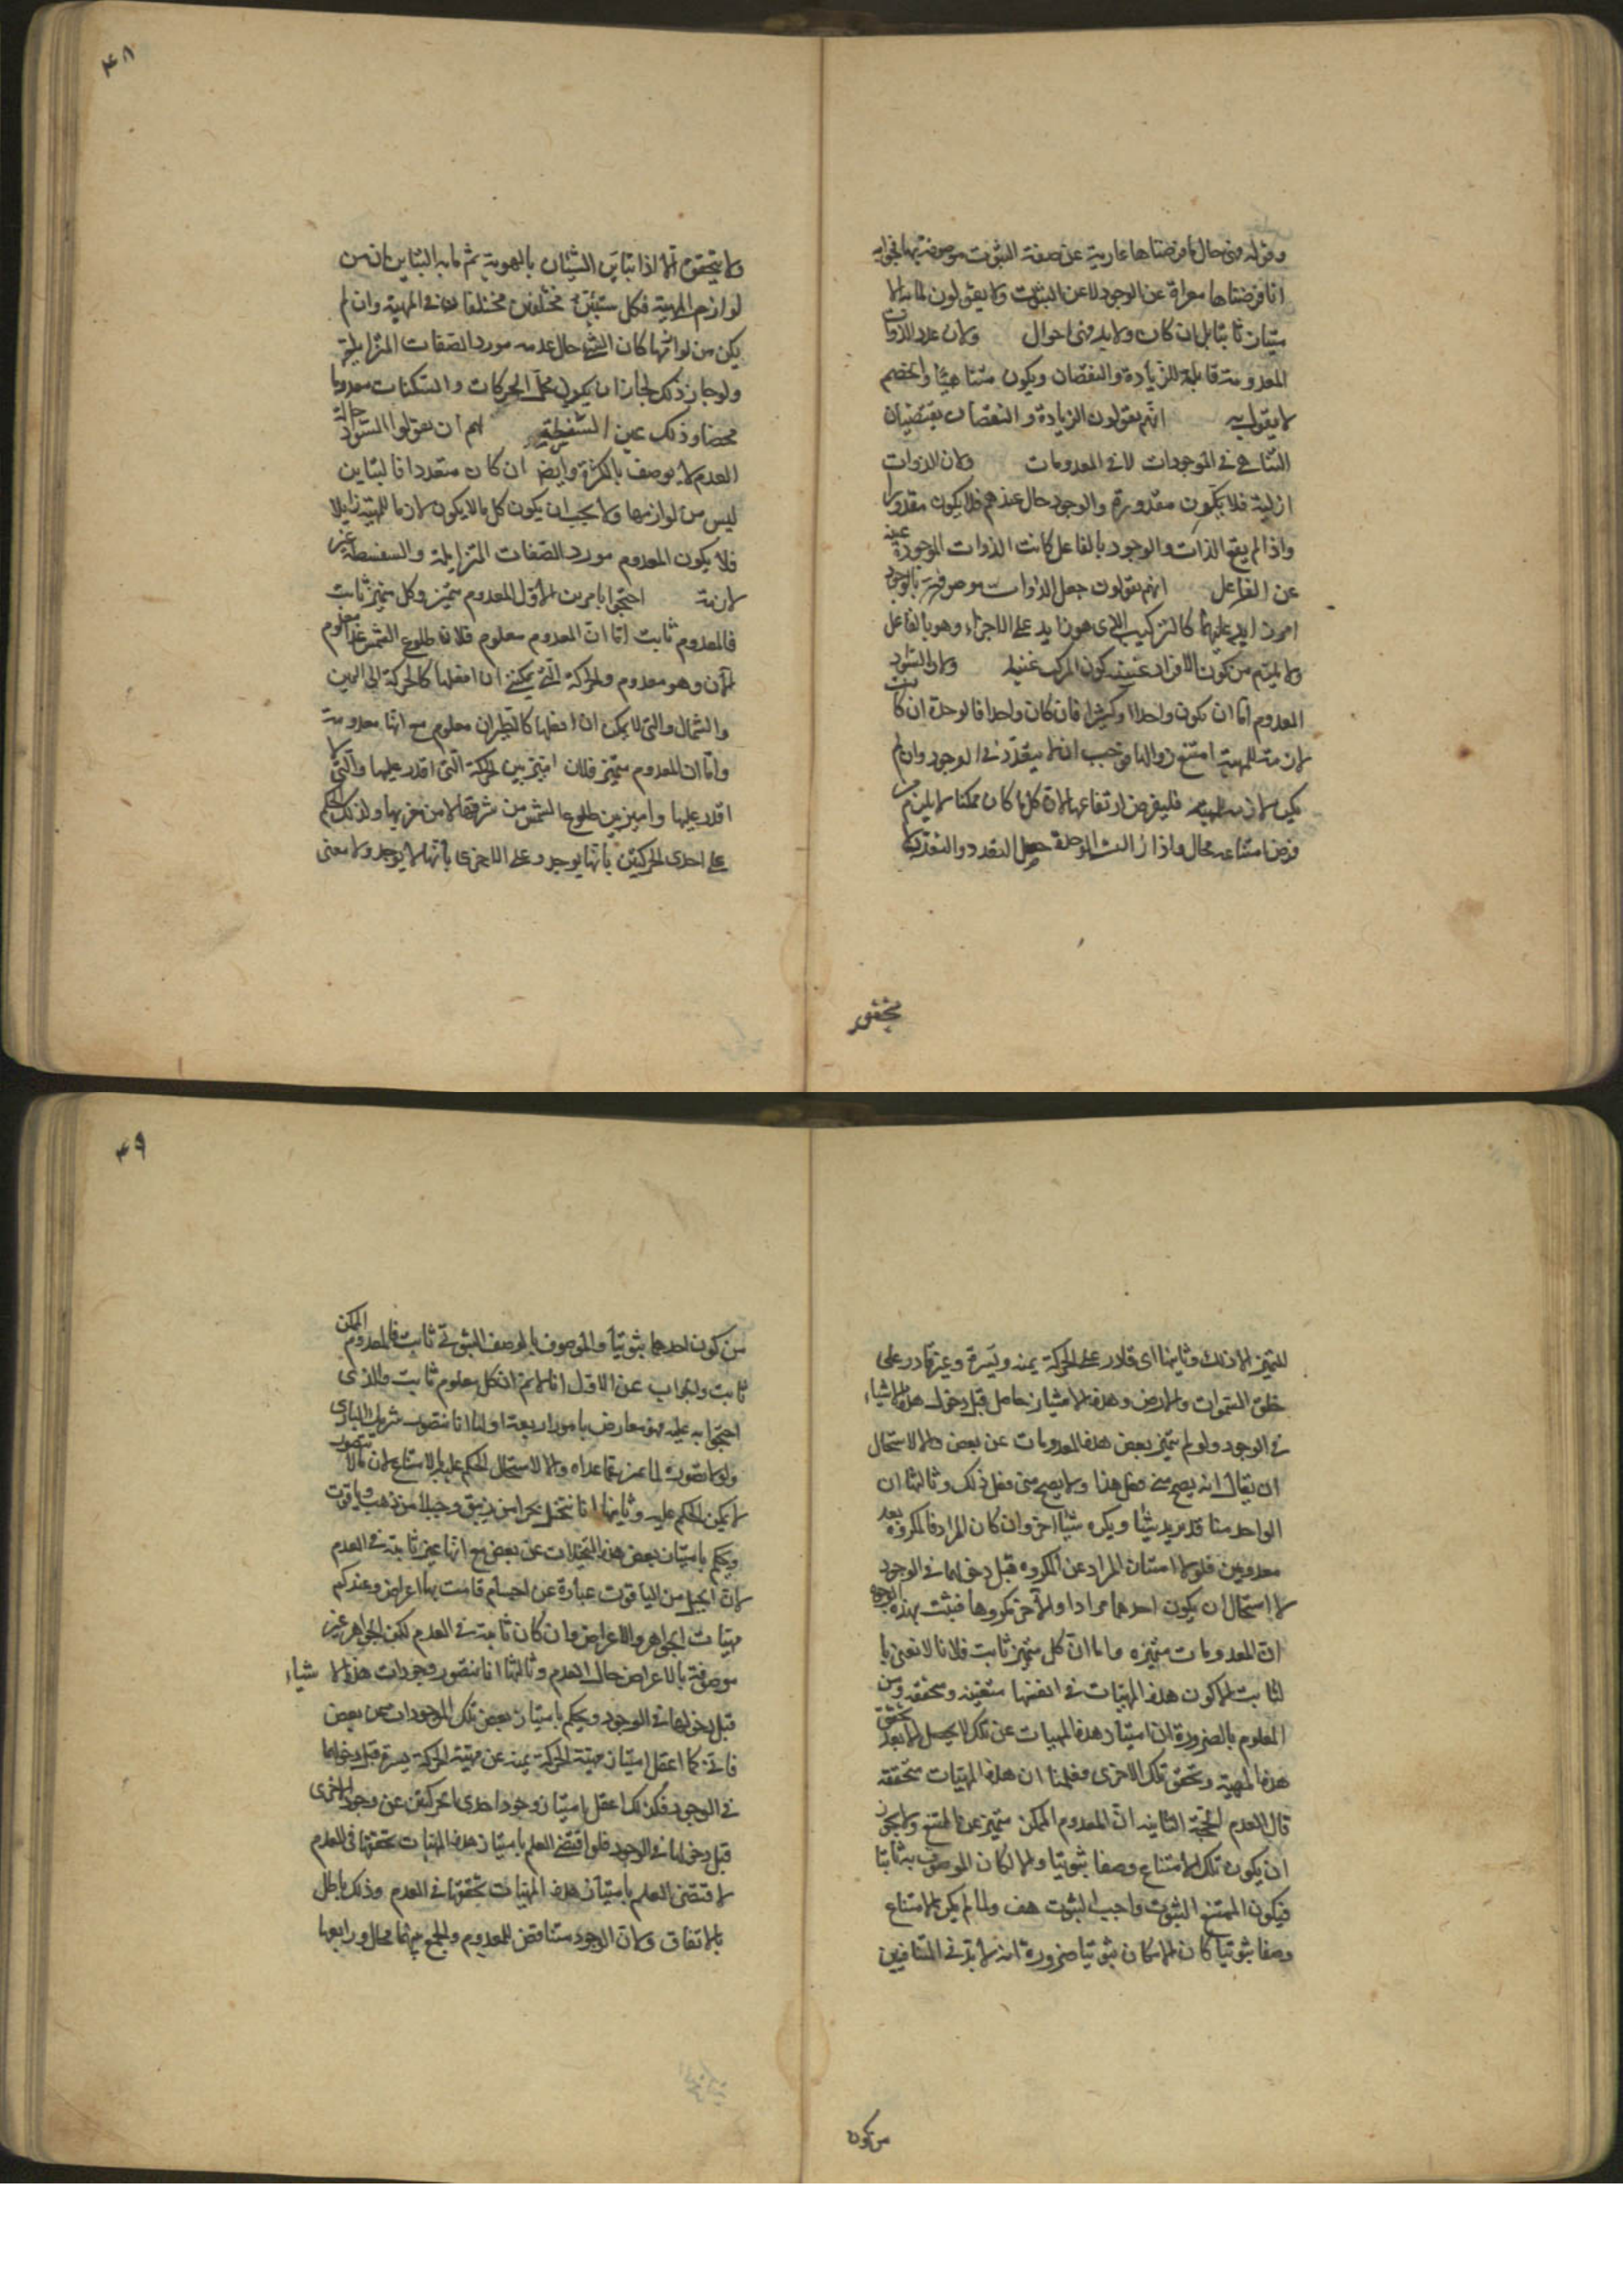 وقوله وفي حال ما فرضناها عارية عن صفة الثبوت موصوفة بها فجوابه
انا فرضناها معراة عن الوجود لا عن الثبوت ولا يقولون لما به الا
متياز ثابتا بل ان كان ولا بد فمن احوال ولان عدد الذوات
المعدومة قابلة للزيادة والنقصان ويكون متناهيا والخصم
لا يقول به انهم يقولون الزيادة والنقصان يقتضيان
التناهي في الموجودات لا في المعدومات ولان الذوات
ازلية فلا يكون مقدورة والوجود حال عندهم فلا يكون مقدورا
واذا لم يقع الذات والوجود بالفاعل كانت الذوات الموجودة غنية
عن الفاعل انهم يقولون جعل الذوات موصوفة بالوجود
امر زايد عليها كالتركيب الذي هو زايد على الاجزاء وهو بالفاعل
ولا يلزم من كون الافراد غنية كون المركب غنيا ولان السواد
المعدوم اما ان يكون واحدا او كثيرا فان كان واحدا فالوحدة ان كانت
لازمة للمهية امتنع زوالها فوجب ان لا يتعدد في الوجود وان لم
يكن لازمة للمهية فليفرض ارتفاعها لان كل ما كان ممكنا لا يلزم من
فرض امتناعه محال واذا زالت الوحدة حصل التعدد والتعدد لا
يتحقق
٤٨
ولا يتحقق الا اذا تباين الشيئان بالهوية ثم ما به التباين ان من
لوازم المهية فكل شيئين مختلفين مختلفان في المهية وان لم
يكن من لوازمها كان الشيء حال عدمه مورد الصفات المتزايلة
ولو جاز ذلك لجاز ان يكون محل الحركات والسكنات معدوما
محضا وذلك عين السفسطة لهم ان يقولوا السواد حالة
العدم لا يوصف بالكثرة وايضا ان كان متعددا فالتباين
ليس من لوازمها ولا يجب ان يكون كل ما لا يكون لازما للمهية زايلا
فلا يكون المعدوم مورد الصفات المتزايلة والسفسطة غير
لازمة احتجوا بامرين الاول المعدوم متميز وكل متميز ثابت
فالمعدوم ثابت اما ان المعدوم معلوم فلان طلوع الشمس غدا معلوم
الان وهو معدوم والحركة التي يمكنني ان افعلها كالحركة الى اليمين
والشمال والتي لا يمكن ان افعلها كالطيران معلوم مع انها معدومة
واما ان المعدوم متميز فلان اميز بين الحركة التي اقدر عليها والتي لا
اقدر عليها واميز بين طلوع الشمس من مشرقها لا من مغربها ولذلك احكم
على احدى الحركتين بانها يوجد وعلى الاخرى بانها لا يوجد ولا معنى
للتميز الا ذلك وثانيها اي قادر على الحركة يمنة ويسرة وغير قادر على
خلق السموات والارض وهذا الامتياز حاصل قبل دخول هذه الاشياء
في الوجود ولو لم يتميز بعض هذه المعدومات عن بعض والا لاستحال
ان يقال انه يصح مني فعل هذا ولا يصح مني فعل ذلك وثالثها ان
الواحد منا قد يريد شيئا ويكره شيئا اخر وان كان المراد والمكروه بعد
معدومين فلولا امتياز المراد عن المكروه قبل دخولهما في الوجود
لاستحال ان يكون احدهما مرادا والاخر مكروها فثبت بهذه الوجوه
ان المعدومات متميزة واما ان كل متميز ثابت فلانا لا نعني با
لثابت الا كون هذه المهيات في انفسها متعينة ومتحققة ومن
المعلوم بالضرورة ان امتياز هذه المهيات عن تلك لا يحصل الا بعد تحقق
هذه المهية وتحقق تلك الاخرى فعلمنا ان هذه المهيات متحققة
قال العدم الحجة الثانية ان المعدوم الممكن متميز عن الممتنع ولا يجوز
ان يكون تلك الامتناع وصفا ثبوتيا والا لكان الموصوف به ثابتا
فيكون الممتنع الثبوت واجب الثبوت هف ولما لم يكن الامتناع
وصفا ثبوتيا كان الامكان ثبوتيا ضرورة انه لا بد في المتنافيين
من كون
٤٩
من كون احدهما ثبوتيا والموصوف بالوصف الثبوتي ثابت فالمعدوم الممكن
ثابت والجواب عن الاول انا لا نم ان كل معلوم ثابت والذي
احتجوا به عليه فهو معارض بامور اربعة اولها انا نتصور شريك الباري
ولولا تصوره لما ميزناه عما عداه والا لاستحال الحكم عليه بالامتناع لان ما لا نتصور
لا يمكن الحكم عليه وثانيها انا نتخيل بحرا من زيبق وجبلا من ذهب وياقوت
ويحكم بامتياز بعض هذه التخيلات عن بعض مع انها غير ثابتة في العدم
لان الجبل من الياقوت عبارة عن اجسام قامت بها اعراض وعندكم
مهيات الجواهر والاعراض وان كان ثابتة في العدم لكن الجواهر غير
موصوفة بالاعراض حال العدم وثالثها انا نتصور وجودات هذه الاشياء
قبل دخولها في الوجود ويحكم بامتياز بعض تلك الموجودات عن بعض
فاني كما اعقل امتياز مهية الحركة يمنة عن مهية الحركة يسرة قبل دخولهما
في الوجود فكذلك اعقل امتياز وجود احدى الحركتين عن وجود الاخرى
قبل دخولهما في الوجود فلو اقتضى العلم بامتياز هذه المهيات تحققها في العدم
لاقتضى العلم بامتياز هذه المهيات تحققها في العدم وذلك باطل
بالاتفاق ولان الوجود مناقض للمعدوم والجمع بينهما محال ورابعها